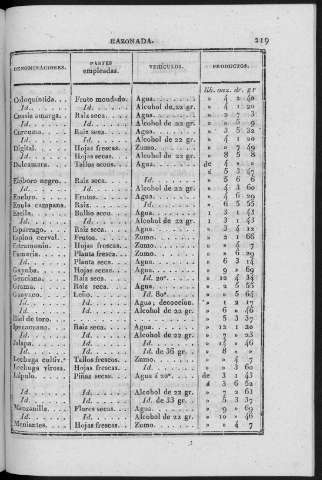 RAZONADA. 219
DENOMINACIONES. PARTES empleadas. VEHÍCULOS. PRODUCTOS.
lib. onz. dr. gr
Coloquintida. . . Fruto mondado. Agua. . . . . . . . » 4 2 40
Id. . . . . . Id. . . . . Alcohol de 22 gr. » 4 1 20
Casia amarga. . . Raiz seca. . . . Agua. . . . . . . . » 2 7 3
Id. . . . . . Id. . . . . Alcohol de 22 gr. » » » 9
Curcuma. . . . . Raiz seca. . . . Agua. . . . . . . . » 3 5 32
Id. . . . . . Id. . . . . Alcohol de 22 gr. » 4 1 20
Digital. . . . . . Hojas frescas. . Zumo. . . . . . . . » » 7 49
Id. . . . . . Hojas secas. . . Alcohol de 22 gr. » 8 5 8
Dulcamara. . . . Tallos secos. . . Agua. . . . . . . . de 4 » »
á 5 3 47
Eléboro negro. . . Raiz seca. . . . Id. . . . . . » 5 6 6
Id. . . . . . Id. . . . . Alcohol de 22 gr. » 4 3 60
Enebro. . . . . . Frutos. . . . . Agua. . . . . . . . » 4 6 29
Enula campana. . Raiz. . . . . . Id. . . . . . » 6 2 55
Escila. . . . . . Bulbo seco. . . Agua. . . . . . . . 1 3 1 41
Id. . . . . . Id. . . . . Alcohol de 22 gr. » 3 1 43
Esparrago. . . . Raiz seca. . . . Agua. . . . . . . . » 3 4 12
Espino cerval. . . Frutos. . . . . Zumo. . . . . . . . » 2 1 66
Estramonio. . . . Hojas frescas. . Zumo. . . . . . . . » » 4 7
Fumaria. . . . . Planta fresca. . Zumo. . . . . . . . » » 6 29
Id. . . . . . Planta seca. . . Agua. . . . . . . . » 6 3 14
Gayuba. . . . . . Hojas secas. . . Agua. . . . . . . . » 9 » 69
Genciana. . . . . Raiz seca. . . . Id. 20°. . . . » 12 4 34
Grama. . . . . . Raiz seca. . . . Agua. . . . . . . . » 2 5 55
Guayaco. . . . . Leño. . . . . . Id. 80°. . . . » » 5 64
Id. . . . . . Id. . . . . Agua; decoccion. » 1 2 17
Id. . . . . . Id. . . . . Alcohol de 22 gr. » 6 » 46
Hiel de toro. . . » 5 3 37
Ipecacuana. . . . Raiz seca. . . . Agua. . . . . . . . » 12 1 20
Id. . . . . . Id. . . . . Alcohol de 22 gr. » 7 » 23
Jalapa. . . . . . Id. . . . . Id. . . . . . » 14 » 46
Id. . . . . . Id. . . . . Id. de 36 gr. » 8 » »
Lechuga cultiv.ª Tallos frescos. . Zumo. . . . . . . . » » 4 7
Lechuga virosa. . Hojas frescas. . Id. . . . . . » » 3 60
Lúpulo. . . . . . Piñas secas. . . Agua á 20°. . . de 3 1 43
á 3 6 52
Id. . . . . . Id. . . . . Alcohol de 22 gr. » 7 2 61
Id. . . . . . Id. . . . . Id. de 33 gr. » 5 3 37
Manzanilla. . . . Flores secas. . . Agua. . . . . . . . » 9 » 69
Id. . . . . . Id. . . . . Alcohol de 22 gr. » 10 » 46
Meniantes. . . . Hojas frescas. . Zumo. . . . . . . . » » 4 7